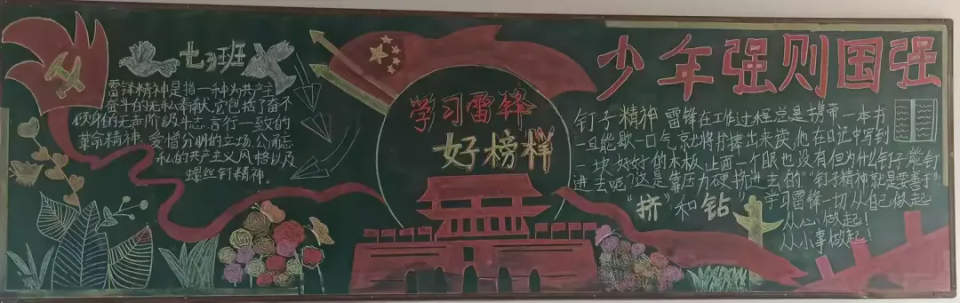 七3班
雷锋精神是指一种为共产主
奋斗的无私奉献,它包括了奋不
顾身的无产阶级斗志,言行一致的
革命精神,爱憎分明的立场,公而忘
私的共产主义风格以及
螺丝钉精神。
学习雷锋
好榜样
少年强则国强
钉子精神 雷锋在工作过程总是携带一本书
一旦能歇一口气就将书拿出来读,他在日记中写到
一块好好的木板,上面一个眼也没有,但为什么钉子能钉
进去呢?这是靠压力硬挤进去的"钉子精神就是要善于
"挤"和"钻" 学习雷锋一切从自己做起
从心做起!
从小事做起!